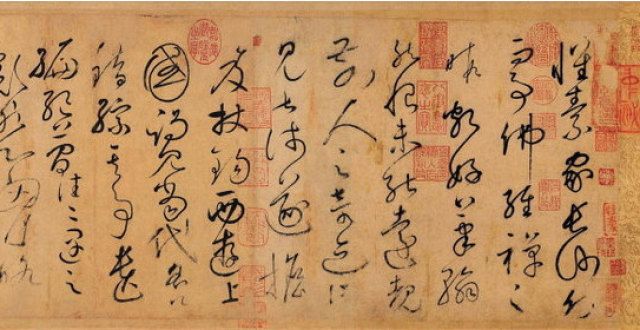 懷素家長沙幼而
事佛經禪之
暇頗好筆翰
然恨未能遠覩
前人之奇迹所
見甚淺遂擔
笈杖錫西遊上
國謁見當代名公
錯綜其事遺
編絕簡往往遇之
豁然心胸略